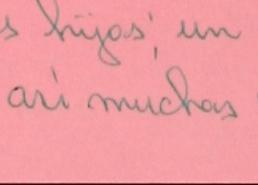 s hijos, un
así muchas